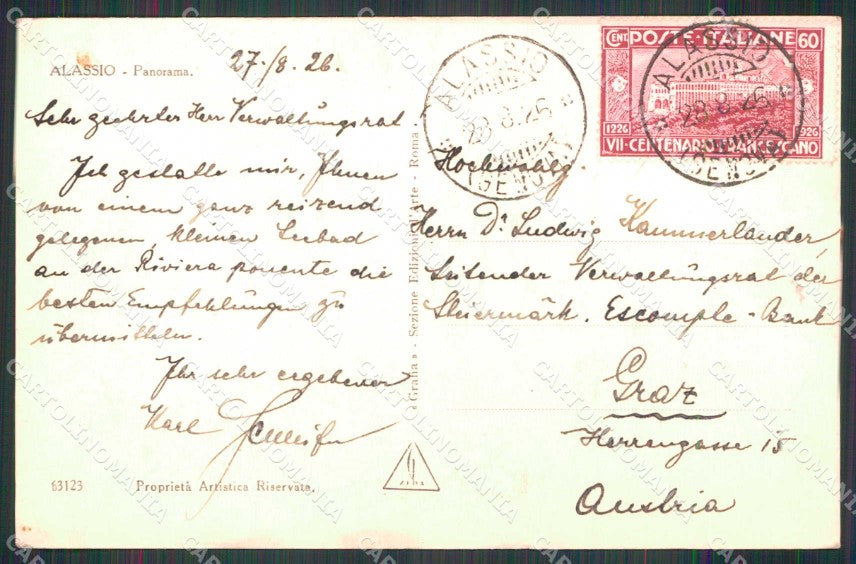 ALASSIO - Panorama.
27./8.26.
Sehr geehrter Herr Verwaltungsrat.
Ich gestatte mir, Ihnen
von einem ganz reizend
gelegenen, kleinen Seebad
an der Riviera ponente die
besten Empfehlungen zu
übermitteln.
Ihr sehr ergebener
Karl
63123 Proprietà Artistica Riservata.
« Grafia » - Sezione Edizioni d'Arte - Roma
ALASSIO
28.8.26
(GENOVA)
CENT. POSTE ITALIANE 60
1226 1926
VII-CENTENARIO FRANCESCANO
ALASSIO
28.8.26
(GENOVA)
Hochwohlg.
Herrn Dr. Ludwig Kammerlander,
Leitender Verwaltungsrat der
Steiermärk. Escompte-Bank
Graz
Herrengasse 15
Austria
CARTOLINOMANIA